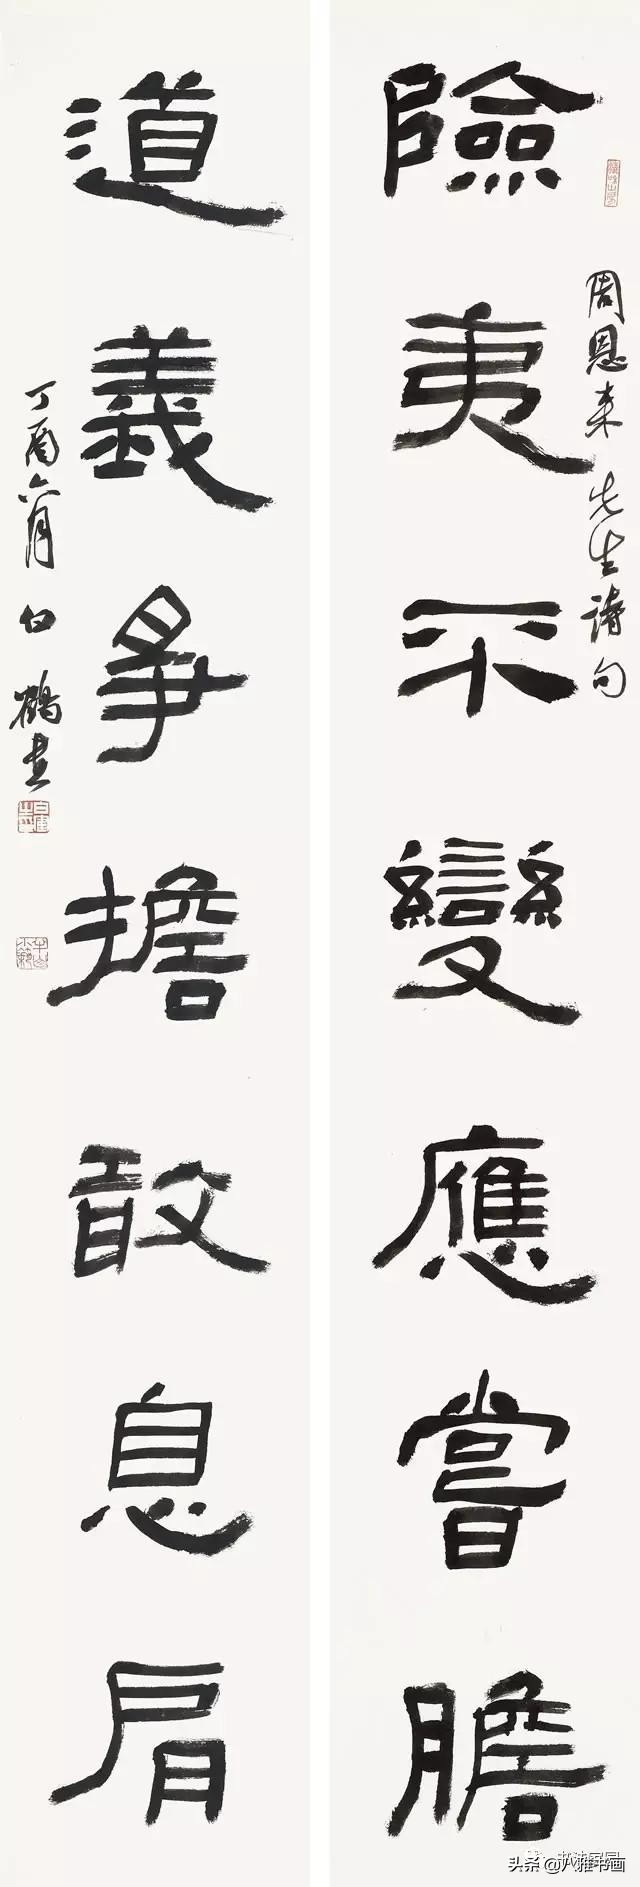 險夷不變應嘗膽
周恩来先生詩句
道義爭擔敢息肩
丁酉六月 白鶴書
头条@八雅书画